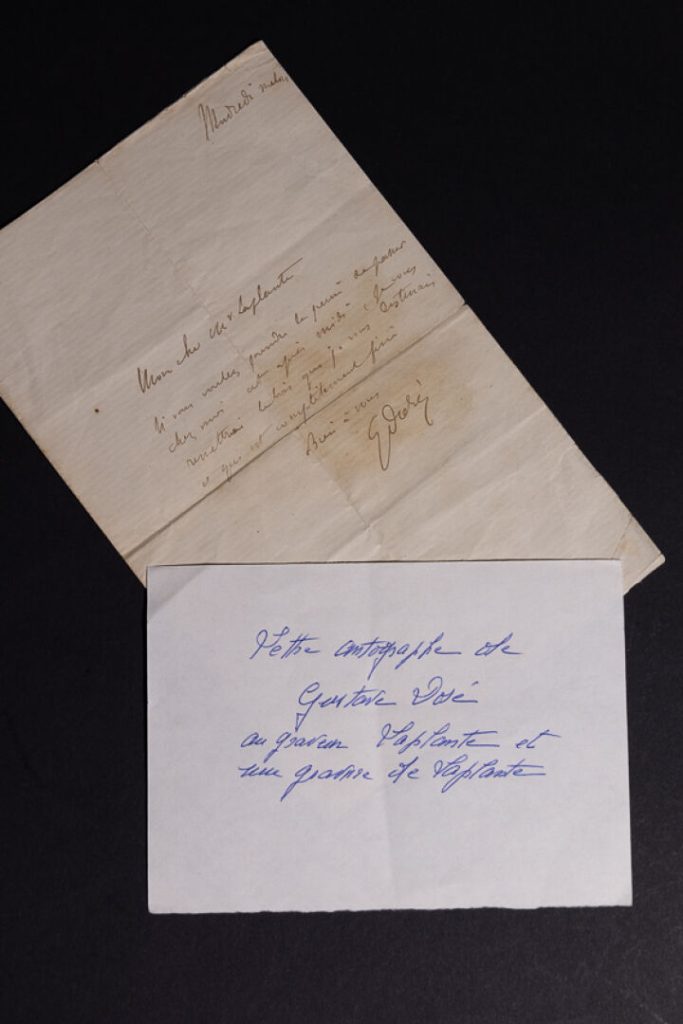 Vendredi matin,
Mon cher Mr Laplante
Si vous voulez prendre la peine de passer
chez moi cet après midi, Je vous
remettrai le bois que je vous destinais
et qui est complètement fini
Bien à vous
G Doré
Lettre autographe de
Gustave Doré
au graveur Laplante et
une gravure de Laplante